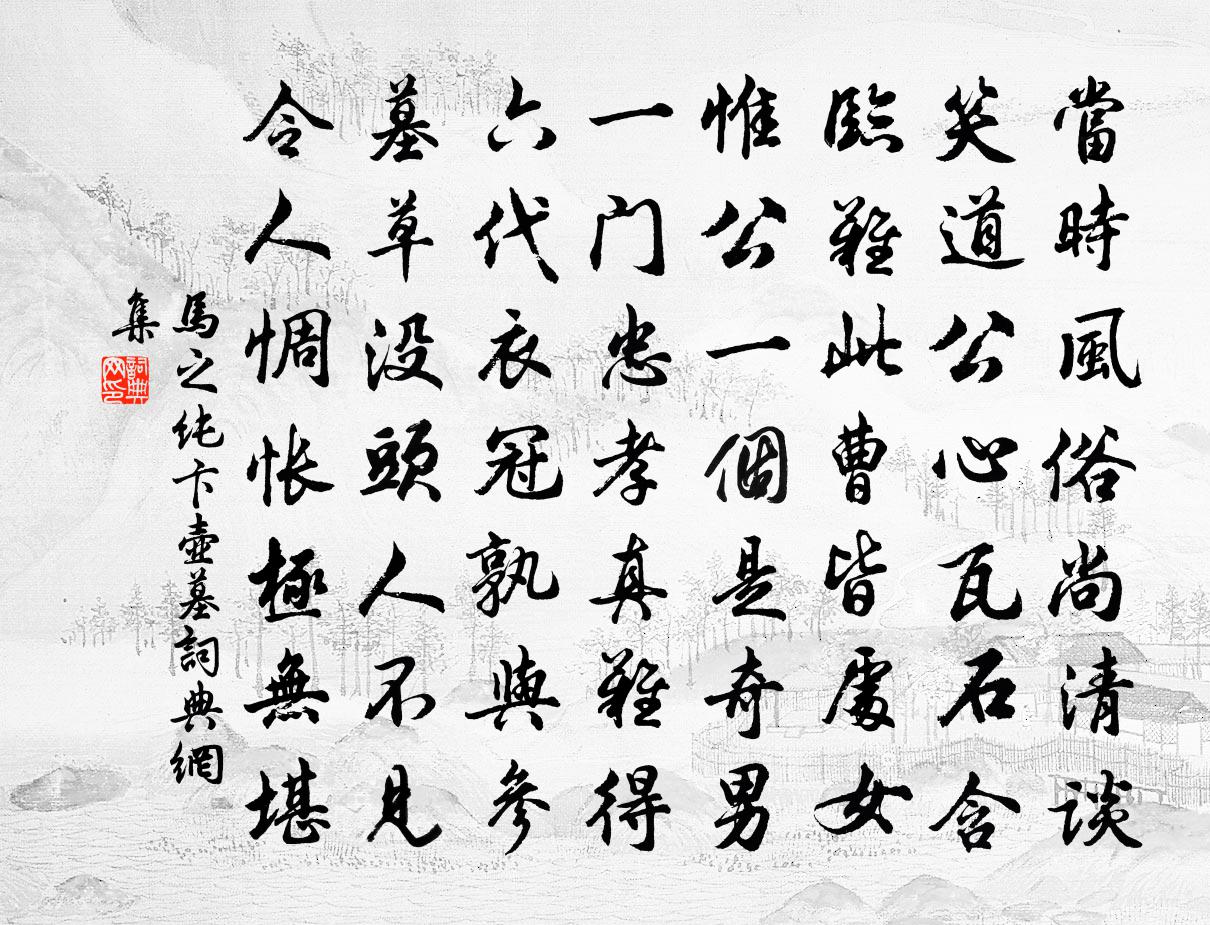 當時風俗尚清谈
笑道公心瓦石含
臨難此曹皆處女
惟公一個是奇男
一门忠孝真難得
六代衣冠孰與參
墓草没頭人不見
令人惆怅極無堪
馬之纯卞壺墓詞典網
集
詞典网印